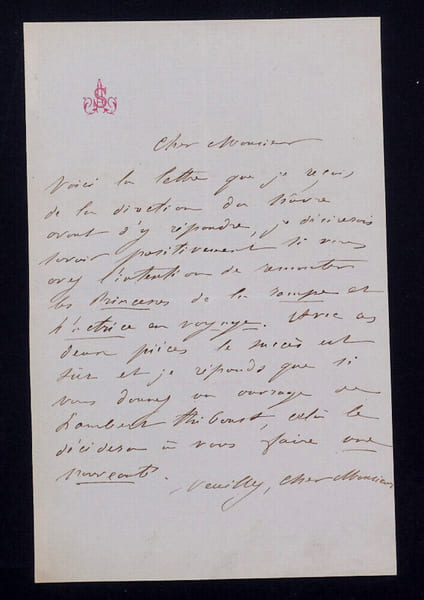 AS
Cher Monsieur
Voici la lettre que je reçois
de la direction du hâvre
avant d'y répondre, je désirerais
savoir positivement si vous
avez l'intention de remonter
les Princesses de la rampe et
L'actrice en voyage. Avec ces
deux pièces le succès est
sûr et je réponds que si
vous donnez un ouvrage de
Lambert Thiboust, cela le
décidera à vous faire une
Veuillez, cher Monsieur